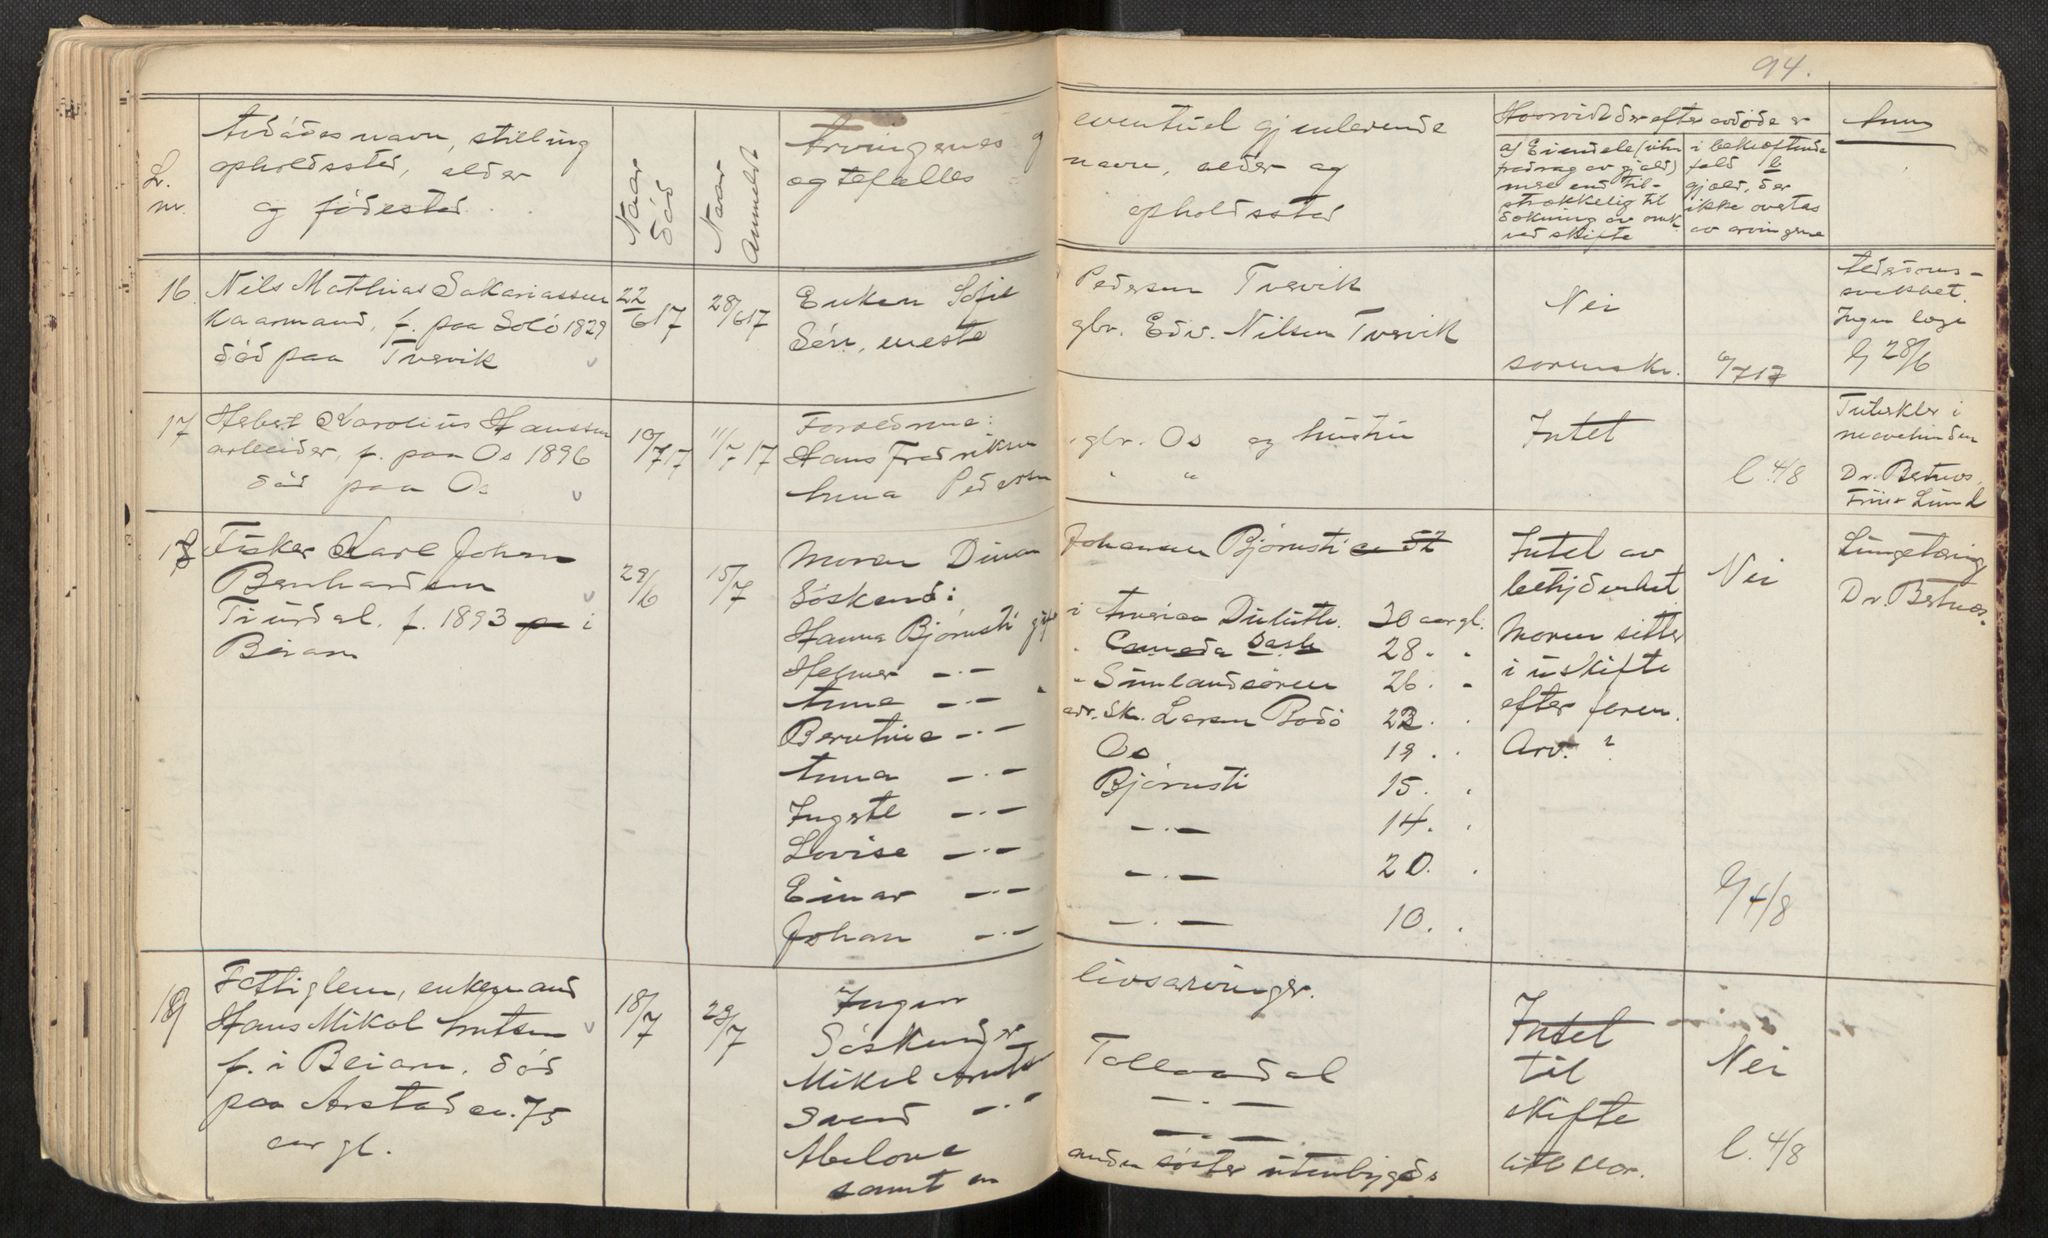 94.
L. nr.
Avdødes navn, stilling
opholdssted, alder
og fødested
Naar død
Naar Anmeldt
Arvingenes og
og tefalles
eventuel gjenlevende
navn, alder og
opholdssted
Hvorvidt der efter avdøde er
af Eiendele (uten
fradrag av gjæld)
mere end til-
strækkelig til
dækning av omk.
ved skifte
i bekræftende
fald
gjæld, der
ikke overtas
av arvingerne
Anm
16 Nils Mathias Sakariassen
Kaarmand, f. paa Solö 1829
død paa Tvervik
22/6 17
28/6 17
Enken Sofie
Sön, eneste
Pedersen Tvervik
gbr. Edv. Nilsen Tvervik
Nei
sorenskr.
6/7 17
Alderdoms-
svakhet.
Ingen læge
28/6
17 Hebert Karolius Hanssen
arbeider, f. paa Os 1896
død paa Os
10/7 17
11/7 17
Forældrene:
Hans Fredriksen
Anna Pedersen
gbr. Os og hustru
" "
Intet
l. 4/8
Tuberkler i
mavehinden
Dr. Bernes.
Lund
18 Fisker Karl Johan
Bernhardsen
Tiurdal. f. 1893 pa i
Beiarn
29/6
15/7
Moren Dina
Søskend:
Hanna Bjørnsti gift
Helmer -"-
Anna -"-
Berntine -"-
Anna -"-
Ingete -"-
Lovise -"-
Einar -"-
Johan -"-
Johansen Bjørnsti
i America Duluth. 30 aar gl.
" Canada Sask 28 " "
" Sunlandsøren 26 " "
adr. Sk. Larsen Bodö 22 "
Os 19 "
Bjørnsti 15 "
-"- 14 "
-"- 20 "
-"- 10 "
Intet av
betydenhet
Moren sitter
i uskifte
efter faren.
Arv. ?
Nei
4/8
Lungetæring
Dr. Bernes.
19 Fattiglem, enkemand
Hans Mikal Arntsen
f. i Beiarn. død
paa Arstad ca. 75
aar gl.
18/7
23/7
Ingen
Søskend er
Mikal Arnts
Svend -"-
Abelone
samt en
livsarvinger.
Tollaadal
-"-
-"-
anden søster utenbygds
Intet
til
skifte
Nei
l. 4/8